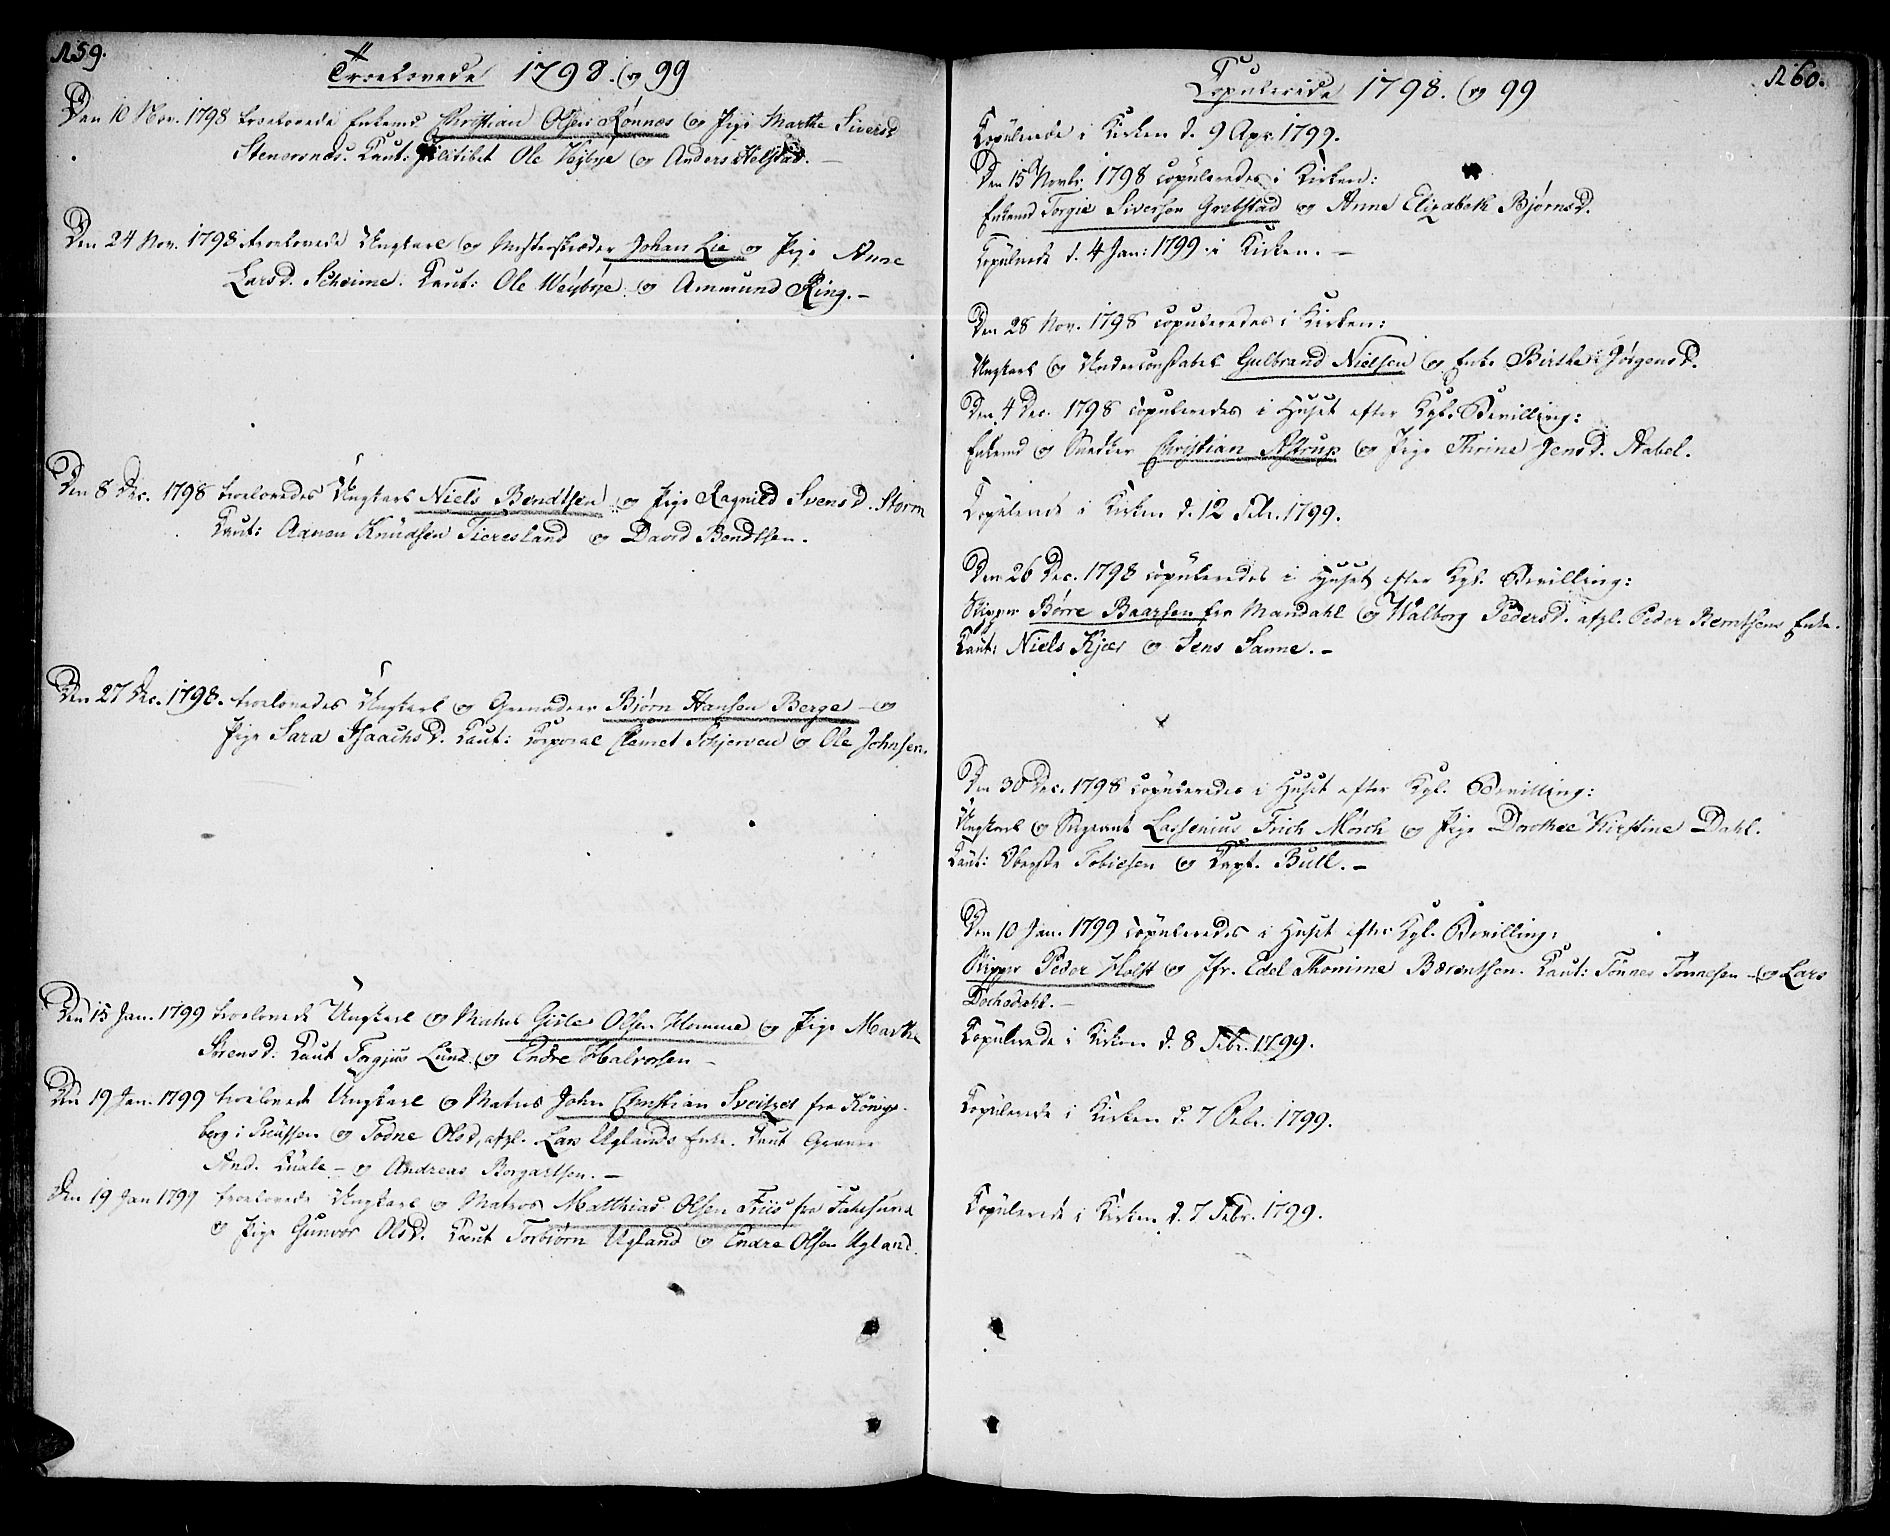 159.
Troelovede 1798. og 99
Den 10 Nov. 1798 troelovede Enkemd Christian Olsen Rønnes og Pige Marthe Siversd
Stenersnes. Caut: Ole Vejbye og Anders Helstad. —
Den 24 Nov. 1798 troelovede Ungkarl og Mesterskræder Johan Lie og Pige Anne
Larsd. Scheime. Caut: Ole Weÿbÿe og Ammund Ring. —
Den 8 Dec. 1798 troelovedes Ungkarl Niels Bendtsen og Pige Ragnild Svensd. Storm
Caut: Aanen Knudsen Tieresland og David Bendtsen.
Den 27 Dec. 1798. troelovedes Ungkarl og Grenadeer Bjørn Hansen Berge — og
Pige Sara Isaachsd. Caut: Corporal Clemet Schjerven og Ole Johnsen.
Den 15 Jan. 1799 troelovede Ungkarl og Matros Gisle Olsen Homme og Pige Marthe
Sørensd: Caut Torgjus Lund og Endre Halvorsen —
Den 19 Jan. 1799 troelovede Ungkarl og Matros John Christian Sveitzer fra Kønigs-
berg i Preüssen og Todne Olsd, afgl. Lars Uglands Enke. Caut
And. — og Andreas Borgartsen. —
Den 19 Jan 1799 troelovede Ungkarl og Matros Matthias Olsen Friis fra Fahrsund
og Pige Gunvor Olsd. Caut Torbiørn Ugland og Endre Olsen Ugland.
160.
Copulerede 1798. og 99
Copulerede i Kirken d. 9 Apr. 1799.
Den 15 Novbr. 1798 copuleredes i Kirken:
Enkemd Torgie Siversen Grebstad og Anne Elizabeth Bjørnsd.
Copulerede d. 4 Jan: 1799. i Kirken. —
Den 28 Nov. 1798 copuleredes i Kirken:
Ungkarl og Underconstabel Gulbrand Nielsen og Enke Birthe Jørgensd.
Den 4 Dec. 1798 copuleredes i Huset efter Kgl. Bevilling:
Enkemd og Snedker Christian Astrup og Pige Thrine Jensd. Aabel.
Copulerede i Kirken d. 12 Febr. 1799.
Den 26 Dec. 1798 copuleredes i Huset efter Kgl. Bevilling:
Skipper Børre Baarsen fra Mandahl og Walborg Pedersd. afgl. Peder Berntsens Enke.
Caut: Niels Kjær og Jens Sanne. —
Den 30 Dec. 1798 copuleredes i Huset efter Kgl. Bevilling:
Ungkarl og Sergeant Lassenius Frich Mørch og Pige Dorothee Kirstine Dahl.
Caut: Oberste Tobiesen og Capt. Bull. —
Den 10 Jan. 1799 copuleredes i Huset efter Kgl. Bevilling:
Skipper Peder Holst og Jfr. Edel Thomine Bærentsen. Caut: Tønnes Tønnesen — og Lars
Dochedahl. —
Copulerede i Kirken d. 8 Febr. 1799.
Copulerede i Kirken d. 7 Febr. 1799.
Copulerede i Kirken d. 7 Febr. 1799.